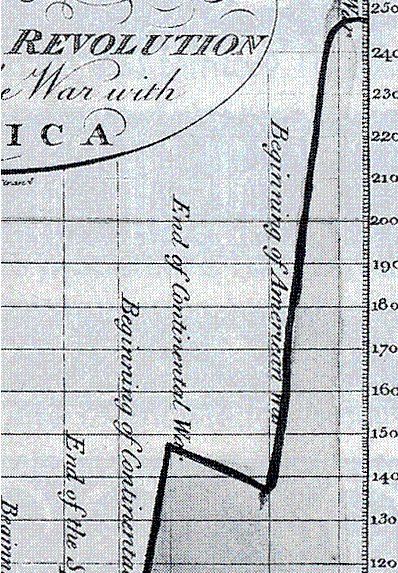 REVOLUTION
e War with
ICA
End of the S
Beginning of Continenta
End of Continental Wa
Beginning of American War
250
240
230
220
210
200
190
180
170
160
150
140
130
120